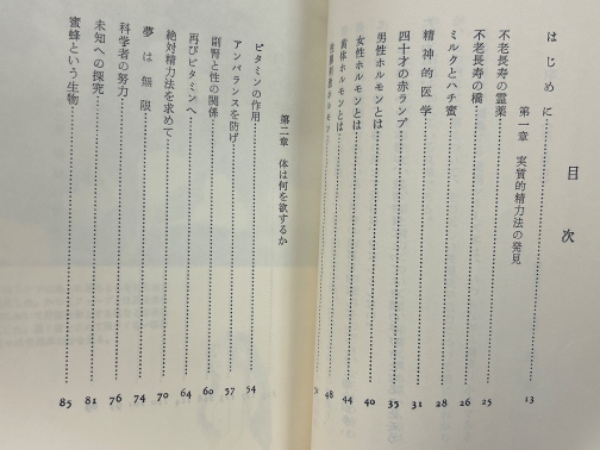 目次
はじめに……13
第一章 実質的精力法の発見
不老長寿の霊薬……25
不老長寿の橋……26
ミルクとハチ蜜……28
精神的医学……31
四十才の赤ランプ……35
男性ホルモンとは……40
女性ホルモンとは……44
黄体ホルモンとは……48
第二章 体は何を欲するか
ビタミンの作用……54
アンバランスを防げ……57
副腎と性の関係……60
再びビタミンへ……64
絶対精力法を求めて……70
夢は無限……74
科学者の努力……76
未知への探究……81
蜜蜂という生物……85